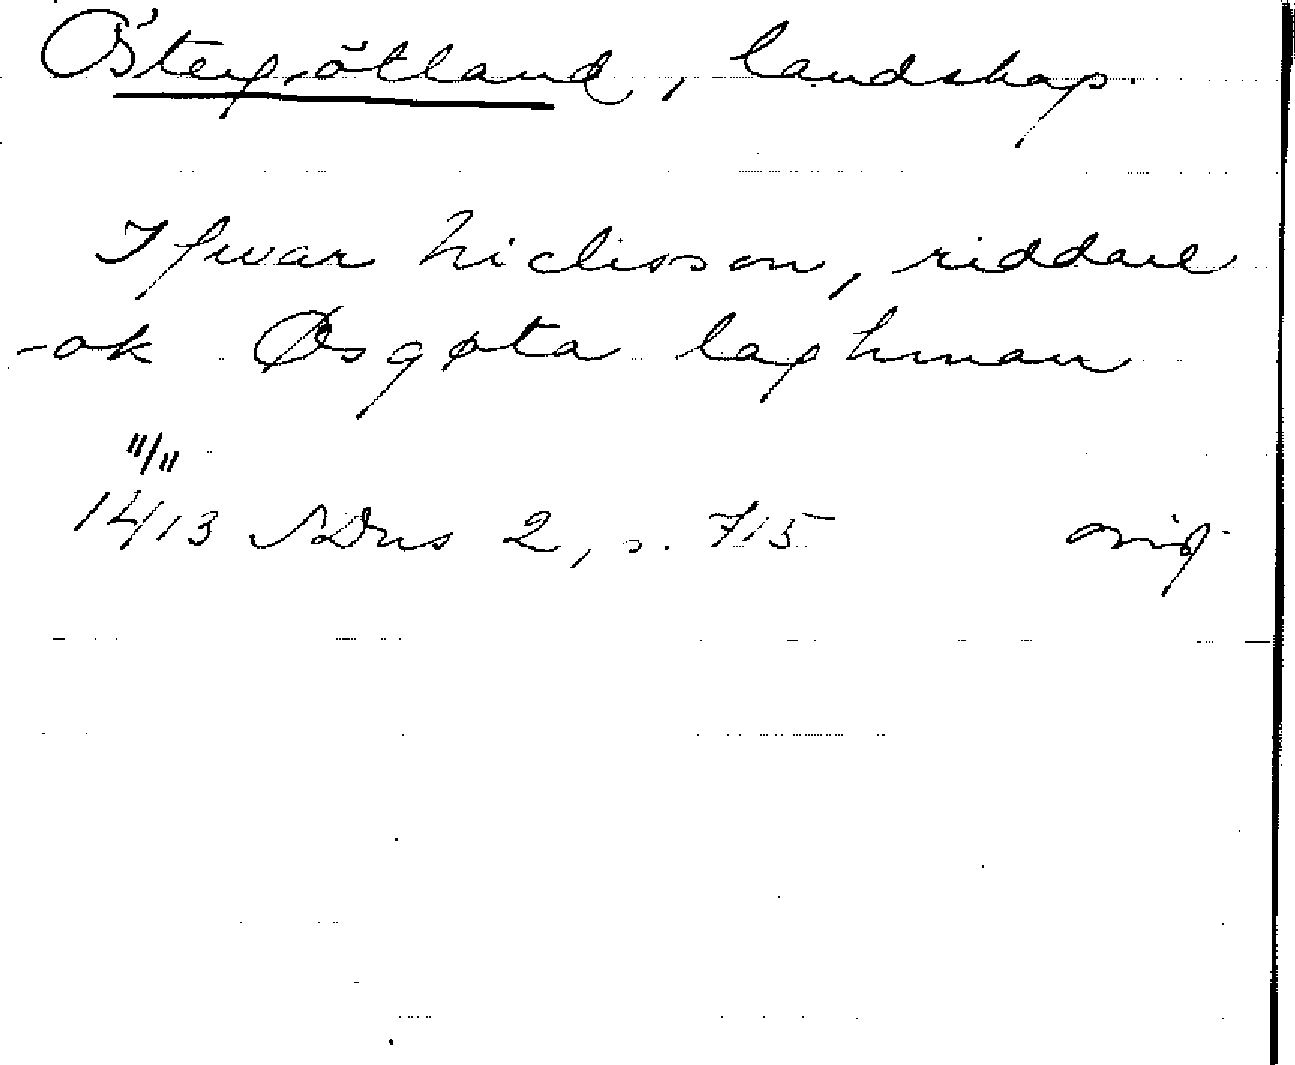 Östergötland, landskap.
Ifwar Niclisson, riddare
ok Øsgøta laghman
11/11
1413 SDns 2, s. 715 orig.